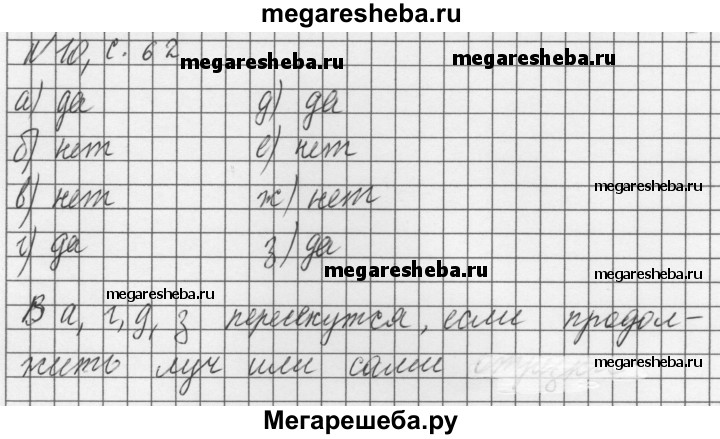 megaresheba.ru
N 18, с. 62
megaresheba.ru
megaresheba.ru
а) да
д) да
б) нет
е) нет
в) нет
ж) нет
megaresheba.ru
г) да
з) да
megaresheba.ru
megaresheba.ru
megaresheba.ru
В а, г, д, з пересекутся, если продол-
жить луч или сами
megaresheba.ru
Мегарешеба.ру